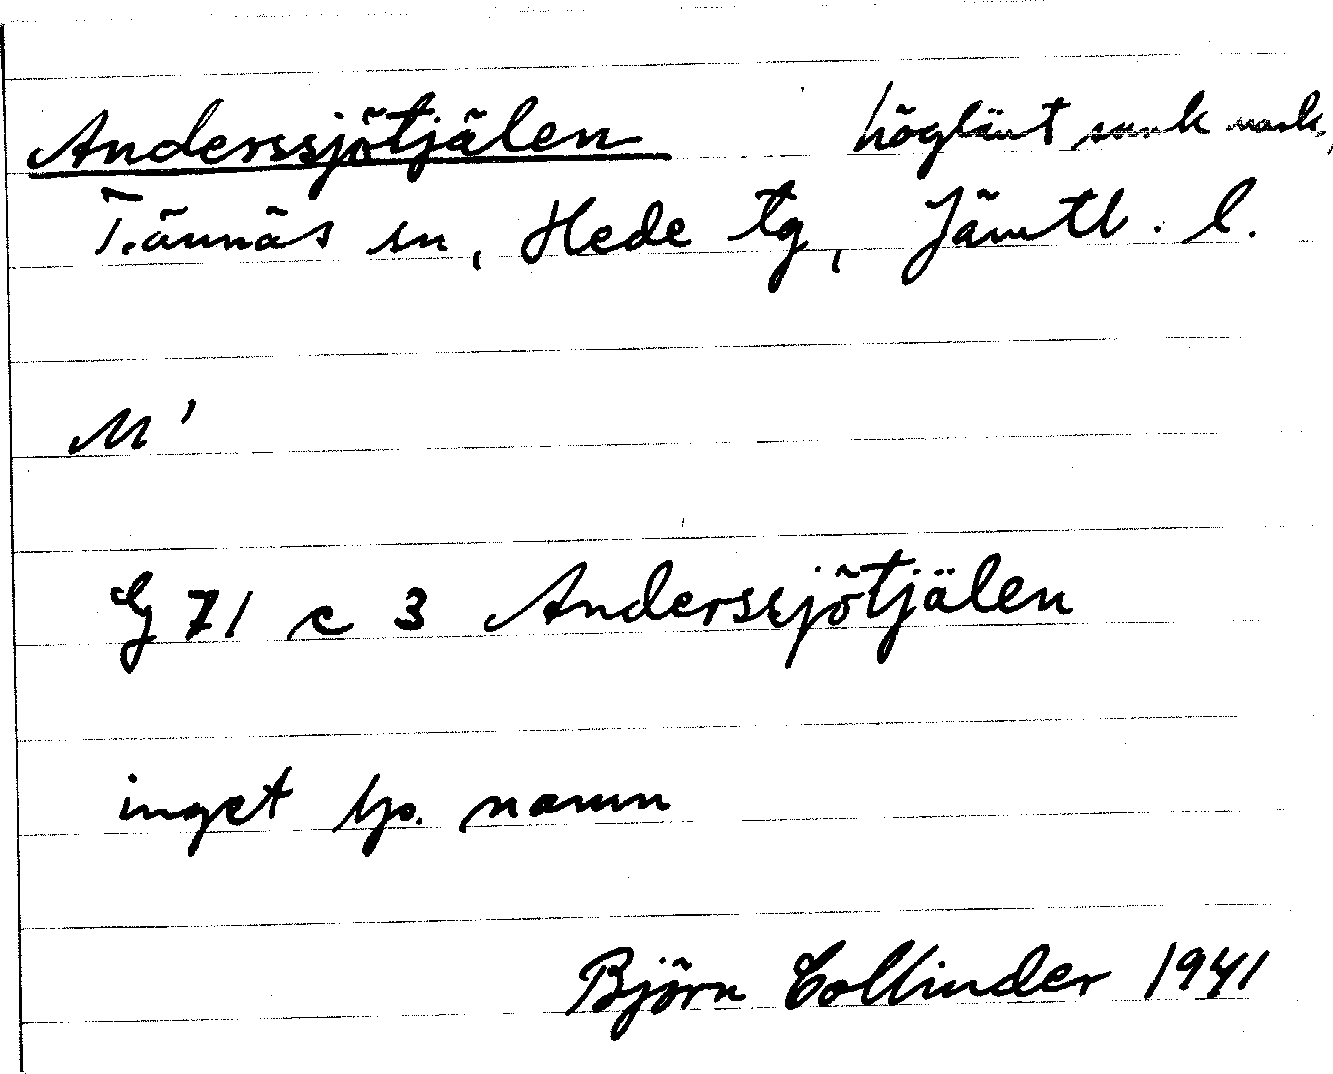 Anderssjötjälen höglänt sank mark,
Tännäs sn, Hede tg, Jämtl. l.
M'
G 71 c 3 Anderssjötjälen
inget lp. namn
Björn Collinder 1941